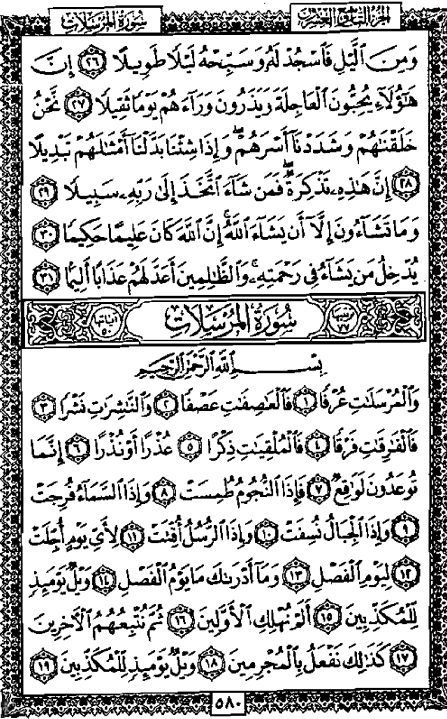 الجزء التاسع والعشرون
سورة المرسلات
وَمِنَ ٱلَّيْلِ فَٱسْجُدْ لَهُۥ وَسَبِّحْهُ لَيْلًا طَوِيلًا ٢٦ إِنَّ
هَٰٓؤُلَآءِ يُحِبُّونَ ٱلْعَاجِلَةَ وَيَذَرُونَ وَرَآءَهُمْ يَوْمًا ثَقِيلًا ٢٧ نَّحْنُ
خَلَقْنَٰهُمْ وَشَدَدْنَآ أَسْرَهُمْ ۖ وَإِذَا شِئْنَا بَدَّلْنَآ أَمْثَٰلَهُمْ تَبْدِيلًا
٢٨ إِنَّ هَٰذِهِۦ تَذْكِرَةٌ ۖ فَمَن شَآءَ ٱتَّخَذَ إِلَىٰ رَبِّهِۦ سَبِيلًا ٢٩
وَمَا تَشَآءُونَ إِلَّآ أَن يَشَآءَ ٱللَّهُ ۚ إِنَّ ٱللَّهَ كَانَ عَلِيمًا حَكِيمًا ٣٠
يُدْخِلُ مَن يَشَآءُ فِى رَحْمَتِهِۦ ۚ وَٱلظَّٰلِمِينَ أَعَدَّ لَهُمْ عَذَابًا أَلِيمًۢا ٣١
سورة المرسلات
ترتيبها ٧٧
آياتها ٥٠
بِسْمِ ٱللَّهِ ٱلرَّحْمَٰنِ ٱلرَّحِيمِ
وَٱلْمُرْسَلَٰتِ عُرْفًا ١ فَٱلْعَٰصِفَٰتِ عَصْفًا ٢ وَٱلنَّٰشِرَٰتِ نَشْرًا ٣
فَٱلْفَٰرِقَٰتِ فَرْقًا ٤ فَٱلْمُلْقِيَٰتِ ذِكْرًا ٥ عُذْرًا أَوْ نُذْرًا ٦ إِنَّمَا
تُوعَدُونَ لَوَٰقِعٌ ٧ فَإِذَا ٱلنُّجُومُ طُمِسَتْ ٨ وَإِذَا ٱلسَّمَآءُ فُرِجَتْ
٩ وَإِذَا ٱلْجِبَالُ نُسِفَتْ ١٠ وَإِذَا ٱلرُّسُلُ أُقِّتَتْ ١١ لِأَىِّ يَوْمٍ أُجِّلَتْ
١٢ لِيَوْمِ ٱلْفَصْلِ ١٣ وَمَآ أَدْرَىٰكَ مَا يَوْمُ ٱلْفَصْلِ ١٤ وَيْلٌ يَوْمَئِذٍ
لِّلْمُكَذِّبِينَ ١٥ أَلَمْ نُهْلِكِ ٱلْأَوَّلِينَ ١٦ ثُمَّ نُتْبِعُهُمُ ٱلْءَاخِرِينَ
١٧ كَذَٰلِكَ نَفْعَلُ بِٱلْمُجْرِمِينَ ١٨ وَيْلٌ يَوْمَئِذٍ لِّلْمُكَذِّبِينَ ١٩
٥٨٠